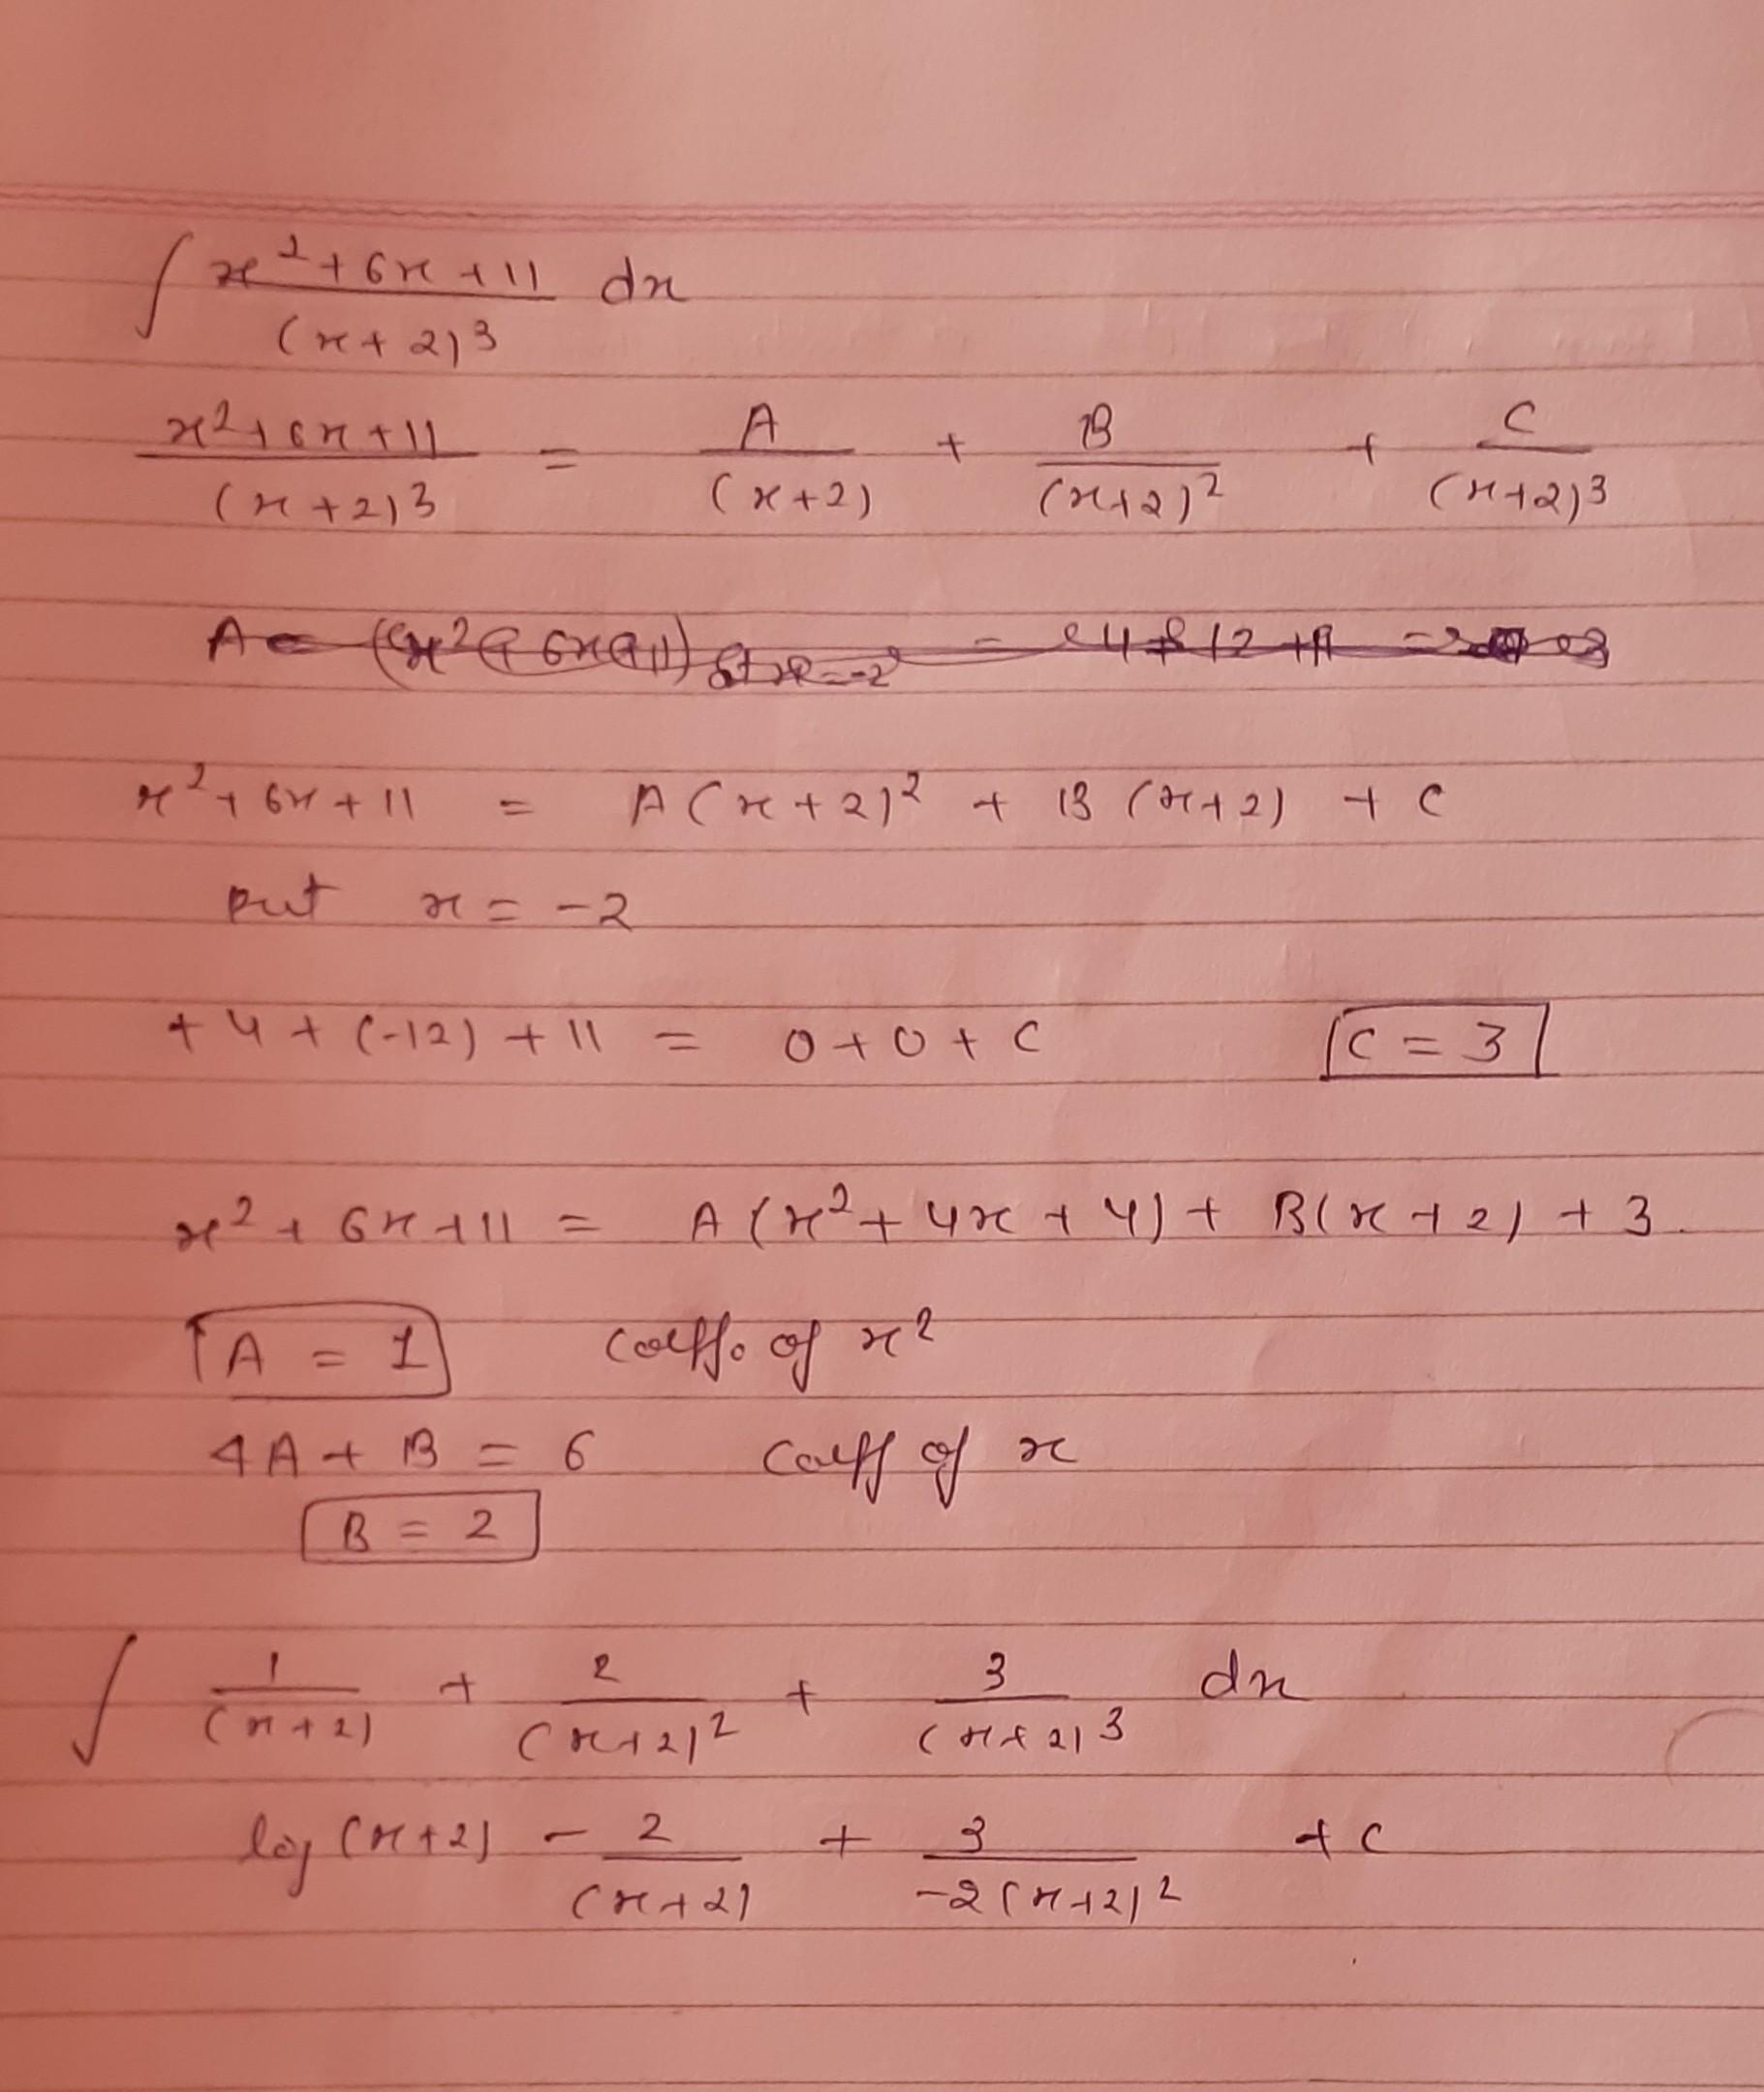 ∫ (x² + 6x + 11)/(x + 2)³ dx
(x² + 6x + 11)/(x + 2)³ = A/(x + 2) + B/(x + 2)² + C/(x + 2)³
x² + 6x + 11 = A(x + 2)² + B(x + 2) + C
Put x = -2
+ 4 + (-12) + 11 = 0 + 0 + C C = 3
x² + 6x + 11 = A(x² + 4x + 4) + B(x + 2) + 3
A = 1 coeff. of x²
4A + B = 6 coeff of x
B = 2
∫ 1/(x + 2) + 2/(x + 2)² + 3/(x + 2)³ dx
log (x + 2) - 2/(x + 2) + 3/-2(x + 2)² + C